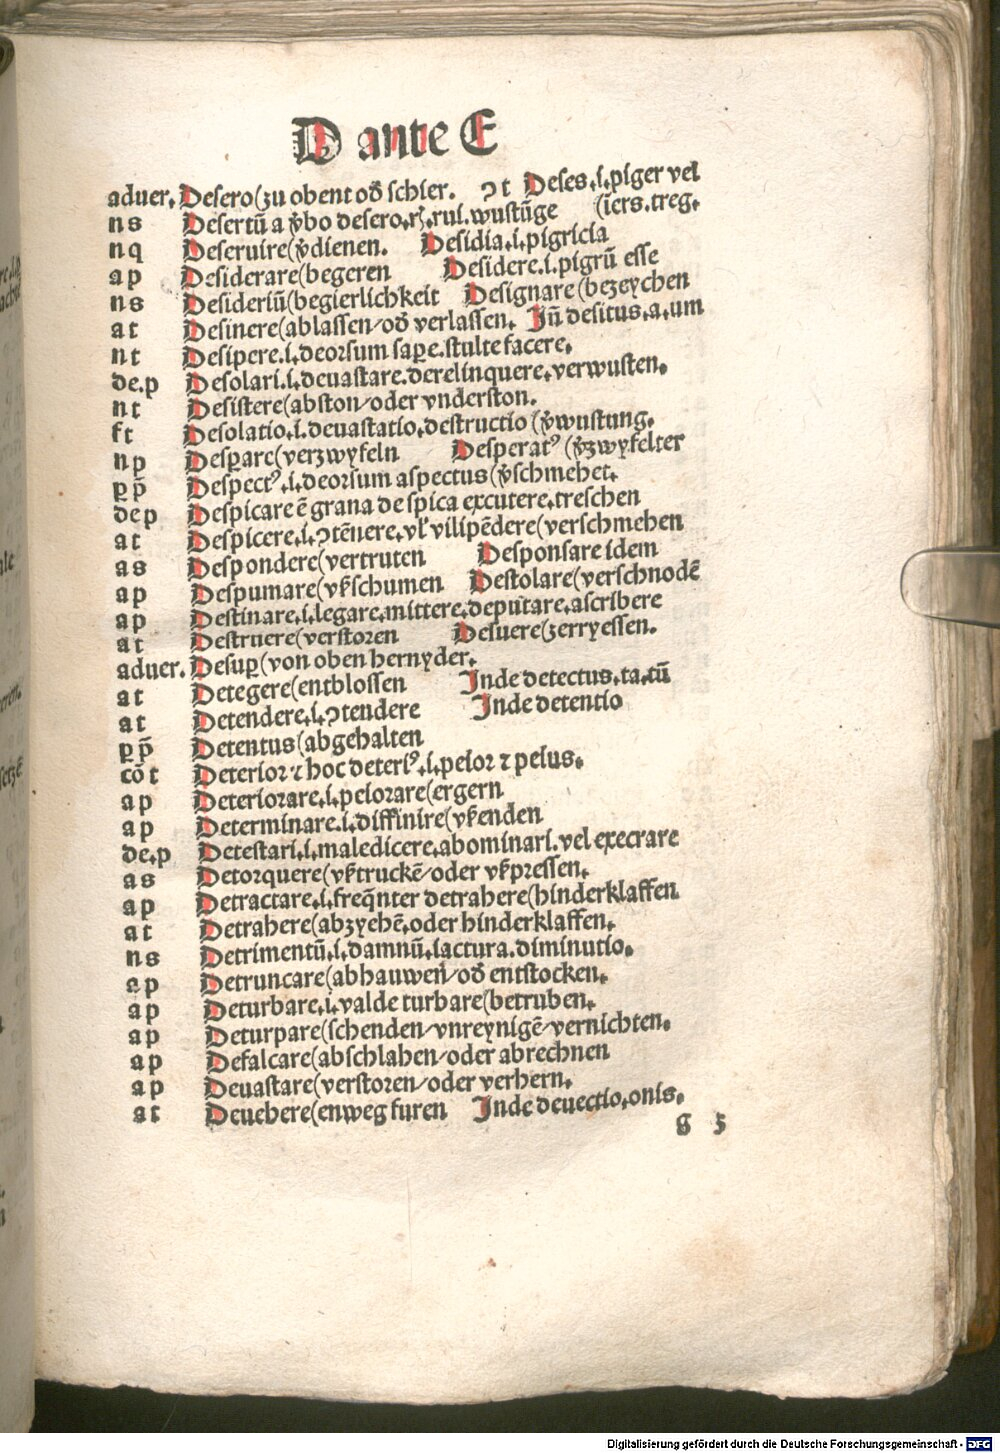 D ante E
aduer. Desero(zu obent od̄ schier. ɔt Deses.i.piger vel
ns Desertū a v̄bo desero.rꝭ.rui.wustūge (iers.treg.
nq Deseruire(v̄dienen. Desidia.i.pigricia
ap Desiderare(begeren Desidere.i.pigrū esse
ns Desideriū(begierlichkeit Designare(bezeychen
at Desinere(ablassen/od̄ verlassen. Jn̄ desitus.a.um
nt Desipere.i.deorsum saꝑe.stulte facere.
de.p Desolari.i.deuastare.derelinquere.verwusten.
nt Desistere(abston/oder vnderston.
ft Desolatio.i.deuastatio.destructio(v̄wustung.
np Desꝑare(verzwyfeln Desperatꝰ(v̄zwyfelter
ꝑp̄ Despectꝰ.i.deorsum aspectus(v̄schmehet.
dep Despicare ē grana de spica excutere.treschen
at Despicere.i.ɔtēnere.vl̄ vilipēdere(verschmehen
as Despondere(vertruten Desponsare idem
ap Despumare(vßschumen Destolare(verschnodē
ap Destinare.i.legare.mittere.deputare.ascribere
at Destruere(verstoren Desuere(zerryessen.
aduer. Desuꝑ(von oben hernyder.
at Detegere(entblossen Jnde detectus.ta.tū
at Detendere.i.ɔtendere Jnde detentio
ꝑp̄ Detentus(abgehalten
cōt Deterior ⁊ hoc deteriꝰ.i.peior ⁊ peius.
ap Deteriorare.i.peiorare(ergern
ap Determinare.i.diffinire(vßenden
de.p Detestari.i.maledicere.abominari.vel execrare
as Detorquere(vßtruckē/oder vßpressen.
ap Detractare.i.freq̄nter detrahere(hinderklaffen
at Detrahere(abzyehē.oder hinderklaffen.
ns Detrimentū.i.damnū.iactura.diminutio.
ap Detruncare(abhauwen/od̄ entstocken.
ap Deturbare.i.valde turbare(betruben.
ap Deturpare(schenden/vnreynigē/vernichten.
ap Defalcare(abschlahen/oder abrechnen
ap Deuastare(verstoren/oder verhern.
at Deuehere(enweg furen Jnde deuectio.onis.
g 3
Digitalisierung gefördert durch die Deutsche Forschungsgemeinschaft - DFG